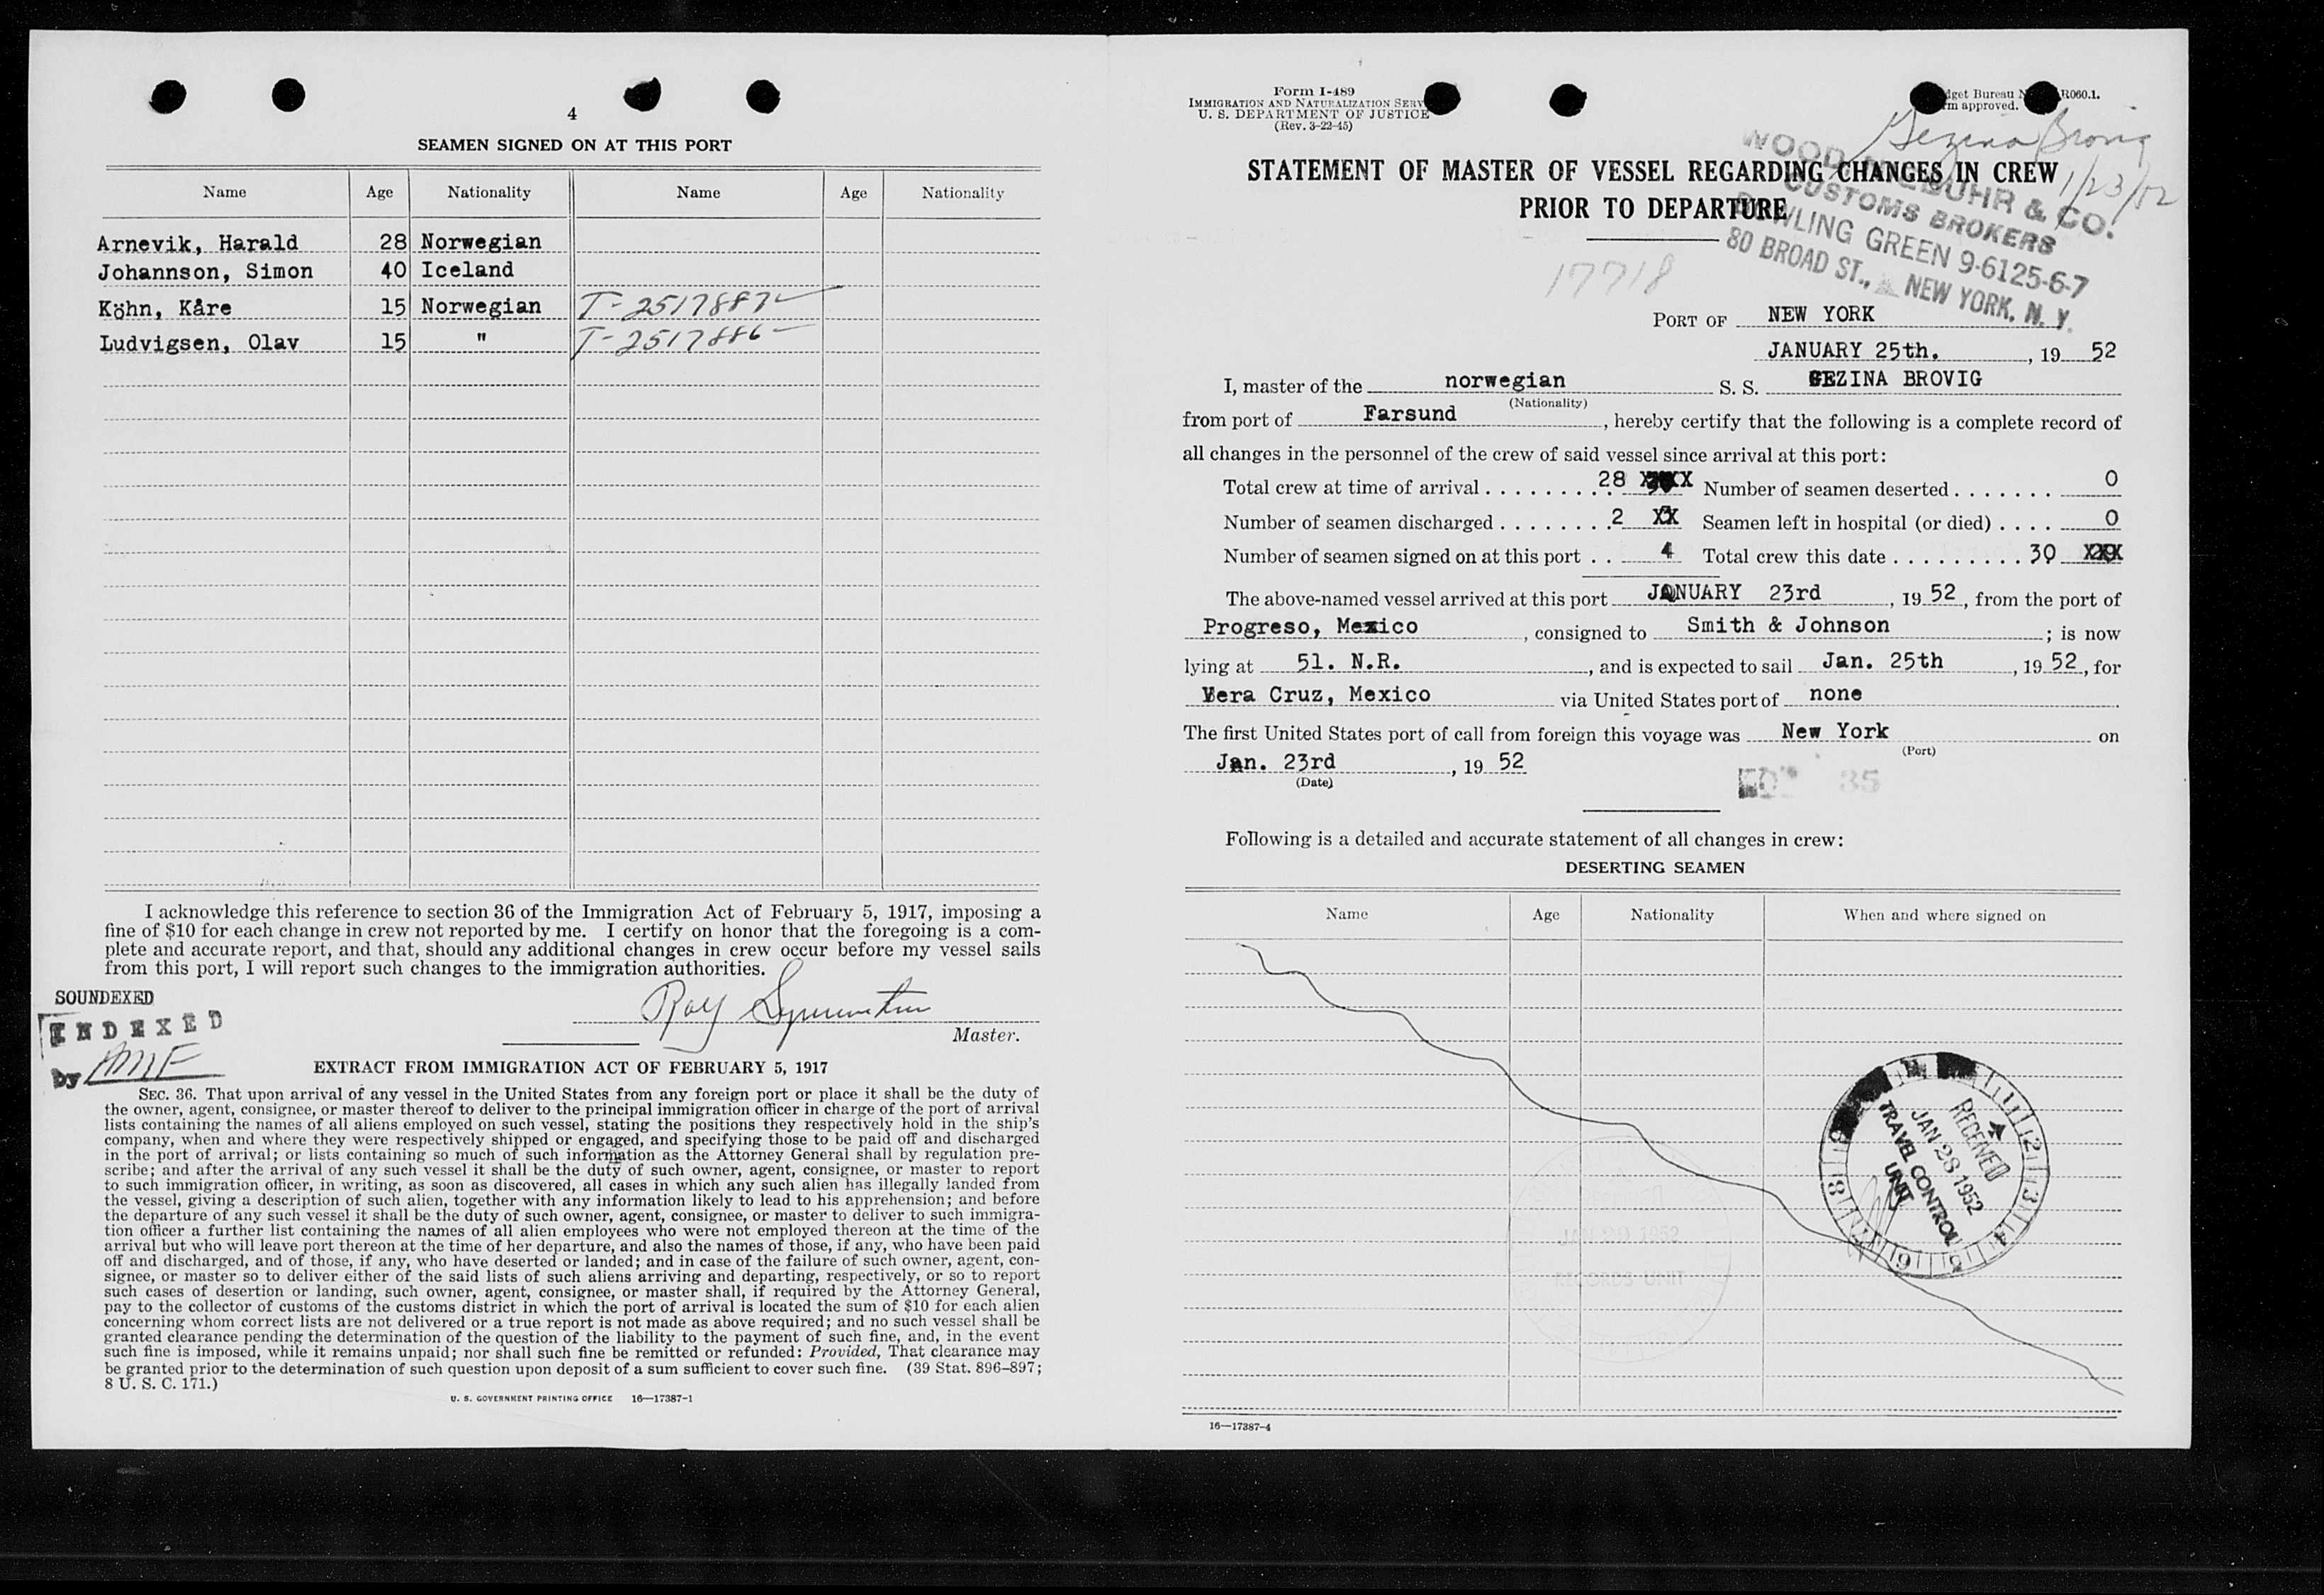 4
SEAMEN SIGNED ON AT THIS PORT
Name Age Nationality Name Age Nationality
Arnevik, Harald 28 Norwegian
Johannson, Simon 40 Iceland
Köhn, Kåre 15 Norwegian T-2517887
Ludvigsen, Olav 15 " T-2517886
I acknowledge this reference to section 36 of the Immigration Act of February 5, 1917, imposing a
fine of $10 for each change in crew not reported by me. I certify on honor that the foregoing is a com-
plete and accurate report, and that, should any additional changes in crew occur before my vessel sails
from this port, I will report such changes to the immigration authorities.
SOUNDEXED
INDEXED
by
Roy
Master.
EXTRACT FROM IMMIGRATION ACT OF FEBRUARY 5, 1917
SEC. 36. That upon arrival of any vessel in the United States from any foreign port or place it shall be the duty of
the owner, agent, consignee, or master thereof to deliver to the principal immigration officer in charge of the port of arrival
lists containing the names of all aliens employed on such vessel, stating the positions they respectively hold in the ship's
company, when and where they were respectively shipped or engaged, and specifying those to be paid off and discharged
in the port of arrival; or lists containing so much of such information as the Attorney General shall by regulation pre-
scribe; and after the arrival of any such vessel it shall be the duty of such owner, agent, consignee, or master to report
to such immigration officer, in writing, as soon as discovered, all cases in which any such alien has illegally landed from
the vessel, giving a description of such alien, together with any information likely to lead to his apprehension; and before
the departure of any such vessel it shall be the duty of such owner, agent, consignee, or master to deliver to such immigra-
tion officer a further list containing the names of all alien employees who were not employed thereon at the time of the
arrival but who will leave port thereon at the time of her departure, and also the names of those, if any, who have been paid
off and discharged, and of those, if any, who have deserted or landed; and in case of the failure of such owner, agent, con-
signee, or master so to deliver either of the said lists of such aliens arriving and departing, respectively, or so to report
such cases of desertion or landing, such owner, agent, consignee, or master shall, if required by the Attorney General,
pay to the collector of customs of the customs district in which the port of arrival is located the sum of $10 for each alien
concerning whom correct lists are not delivered or a true report is not made as above required; and no such vessel shall be
granted clearance pending the determination of the question of the liability to the payment of such fine, and, in the event
such fine is imposed, while it remains unpaid; nor shall such fine be remitted or refunded: Provided, That clearance may
be granted prior to the determination of such question upon deposit of a sum sufficient to cover such fine. (39 Stat. 896–897;
8 U. S. C. 171.)
U. S. GOVERNMENT PRINTING OFFICE 16—17387-1
Form I-489
IMMIGRATION AND NATURALIZATION SERV
U. S. DEPARTMENT OF JUSTICE
(Rev. 3-22-45)
dget Bureau N R060.1.
rm approved.
Gezina Brovig
1/23/52
STATEMENT OF MASTER OF VESSEL REGARDING CHANGES IN CREW
PRIOR TO DEPARTURE
WOOD, NIEBUHR & CO.
CUSTOMS BROKERS
BOWLING GREEN 9-6125-6-7
80 BROAD ST., NEW YORK, N. Y.
17718
PORT OF NEW YORK
JANUARY 25th, , 19 52
I, master of the norwegian S. S. GEZINA BROVIG
(Nationality)
from port of Farsund, hereby certify that the following is a complete record of
all changes in the personnel of the crew of said vessel since arrival at this port:
Total crew at time of arrival 28 Number of seamen deserted 0
Number of seamen discharged 2 Seamen left in hospital (or died) 0
Number of seamen signed on at this port 4 Total crew this date 30
The above-named vessel arrived at this port JANUARY 23rd, 19 52, from the port of
Progreso, Mexico, consigned to Smith & Johnson; is now
lying at 51. N.R., and is expected to sail Jan. 25th, 19 52, for
Vera Cruz, Mexico via United States port of none.
The first United States port of call from foreign this voyage was New York on
(Port)
Jan. 23rd, 19 52
(Date)
35
Following is a detailed and accurate statement of all changes in crew:
DESERTING SEAMEN
Name Age Nationality When and where signed on
RECEIVED
JAN 28 1952
TRAVEL CONTROL
UNIT
JAN 30 1952
RECORDS UNIT
16—17387-4